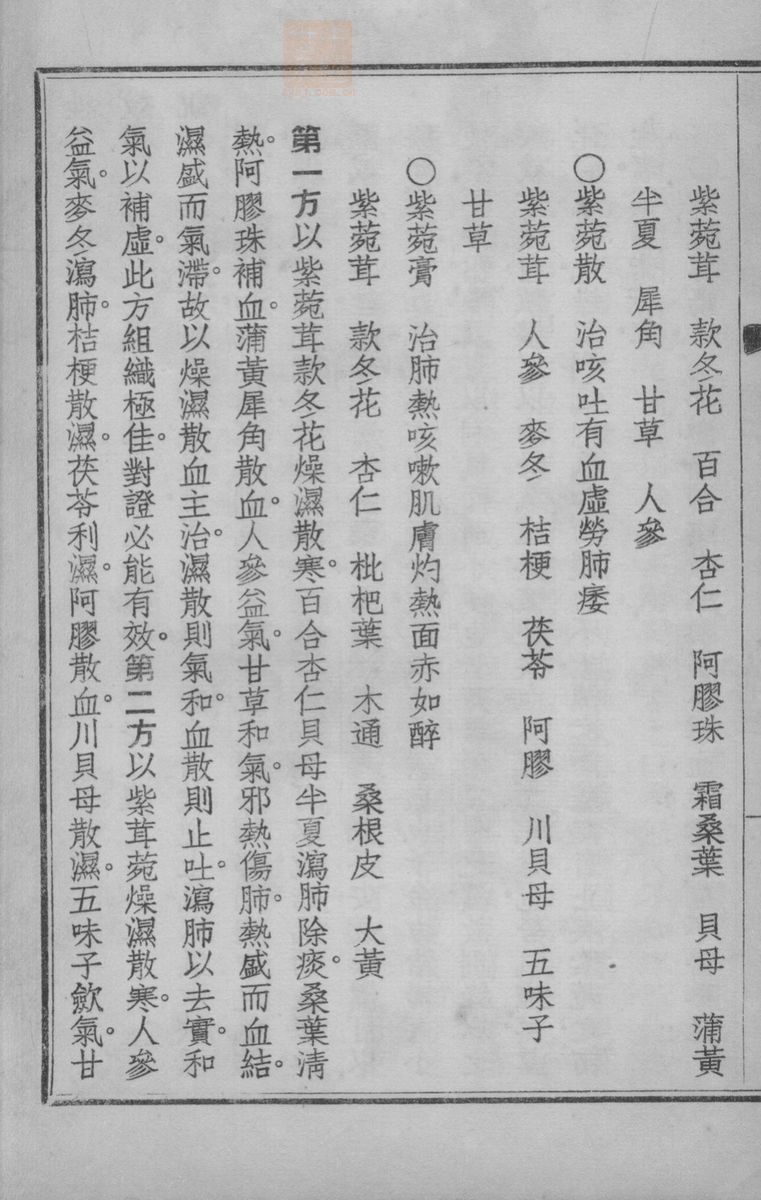 紫菀茸 款冬花 百合 杏仁 阿膠珠 霜桑葉 貝母 蒲黃
半夏 犀角 甘草 人參
〇紫菀散 治咳吐有血虛勞肺痿
紫菀茸 人參 麥冬 桔梗 茯苓 阿膠 川貝母 五味子
甘草
〇紫菀膏 治肺熱咳嗽肌膚灼熱面赤如醉
紫菀茸 款冬花 杏仁 枇杷葉 木通 桑根皮 大黃
第一方以紫菀茸款冬花燥濕散寒。百合杏仁貝母半夏瀉肺除痰。桑葉淸
熱。阿膠珠補血。蒲黃犀角散血。人參益氣。甘草和氣。邪熱傷肺。熱盛而血結。
濕盛而氣滯。故以燥濕散血主治。濕散則氣和。血散則止吐。瀉肺以去實。和
氣以補虛。此方組織極佳。對證必能有效。第二方以紫茸菀燥濕散寒。人參
益氣。麥冬瀉肺。桔梗散濕。茯苓利濕。阿膠散血。川貝母散濕。五味子歛氣。甘